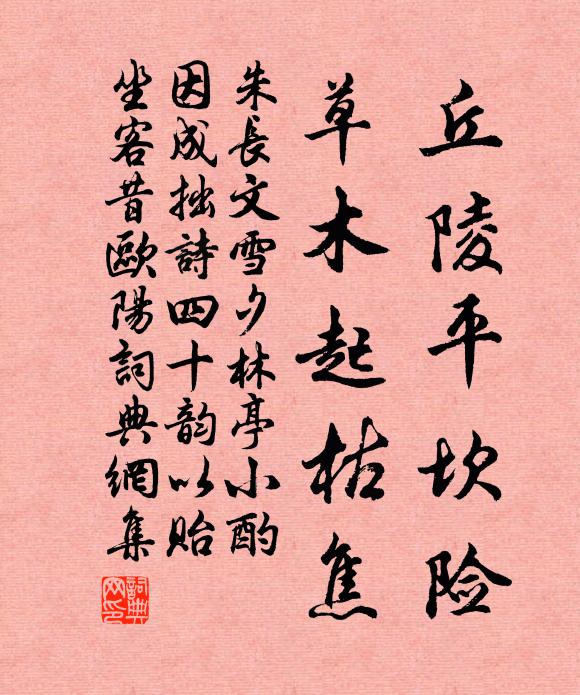 丘陵平坎险
草木起枯焦
朱長文雪夕林亭小酌
因成拙詩四十韵以貽
坐客昔歐陽詞典網集
詞典網印